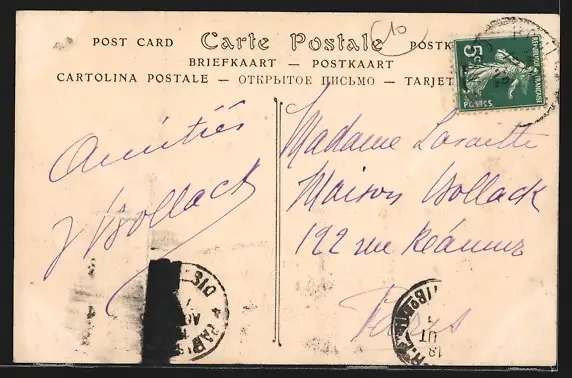 POST CARD Carte Postale POSTK
BRIEFKAART — POSTKAART
CARTOLINA POSTALE — ОТКРЫТОЕ ПИСЬМО — TARJET
10
5c
RÉPUBLIQUE FRANÇAISE
POSTES
Amitiés
J Bollack
Madame
Maison Bollack
122 rue Réaumur
Paris
PARIS
DIS
18